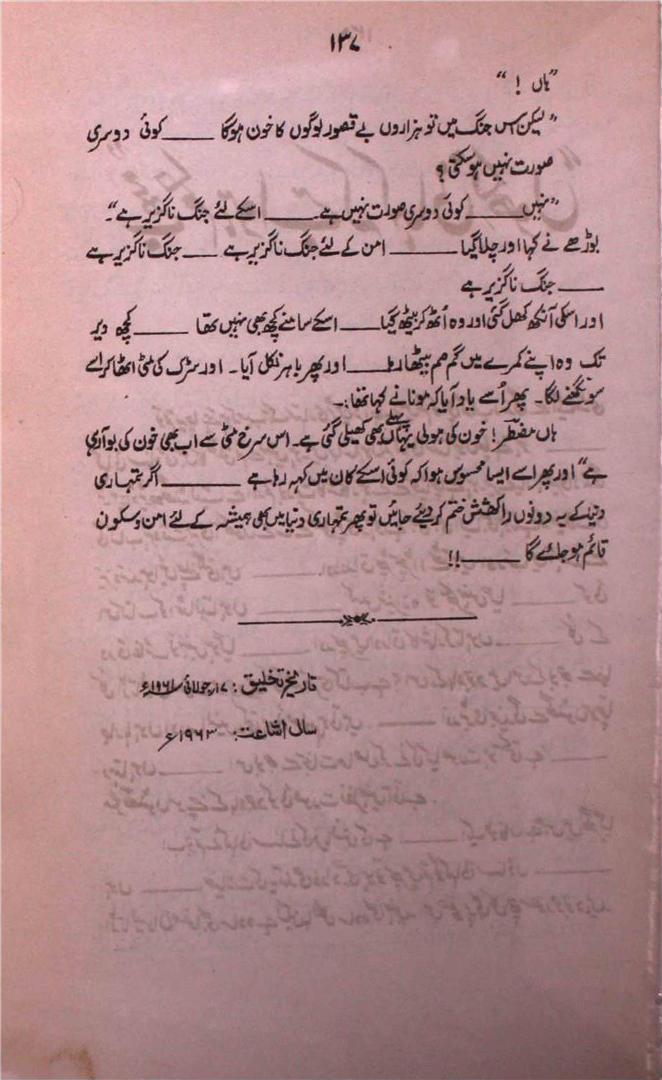 ۱۳۷
"ہاں !"
"لیکن اس جنگ میں تو ہزاروں بے قصور لوگوں کا خون ہوگا ــــــ کوئی دوسری
صورت نہیں ہوسکتی؟
"نہیں ــــــ کوئی دوسری صورت نہیں ہے۔ ــــــ اسکے لئے جنگ ناگزیر ہے"۔
بوڑھے نے کہا اور چلا گیا ــــــ امن کے لئے جنگ ناگزیر ہے ــــــ جنگ ناگزیر ہے
ــــــ جنگ ناگزیر ہے
اور اسکی آنکھ کھل گئی اور وہ اُٹھ کر بیٹھ گیا ــــــ اسکے سامنے کچھ بھی نہیں تھا ــــــ کچھ دیر
تک وہ اپنے کمرے میں گم صم بیٹھا رہا ــــــ اور پھر باہر نکل آیا۔ اور سڑک کی مٹی اٹھا کر اسے
سونگھنے لگا۔ پھر اُسے یاد آیا کہ مونا نے کہا تھا:۔
ہاں مفنطر! خون کی ہولی یہاں پہلے بھی کھیلی گئی ہے۔ اس سرخ مٹی سے اب بھی خون کی بو آرہی
ہے" اور پھر اسے ایسا محسوس ہوا کہ کوئی اسکے کان میں کہہ رہا ہے ــــــ اگر تمہاری
دنیا کے یہ دونوں راکھشش ختم کر دیئے جائیں تو پھر تمہاری دنیا میں بھی ہمیشہ کے لئے امن و سکون
قائم ہو جائے گا ــــــ!!
تاریخِ تخلیق: ۱۷؍جولائی ۱۹۶۱ء
سال اشاعت: ۱۹۶۳ء